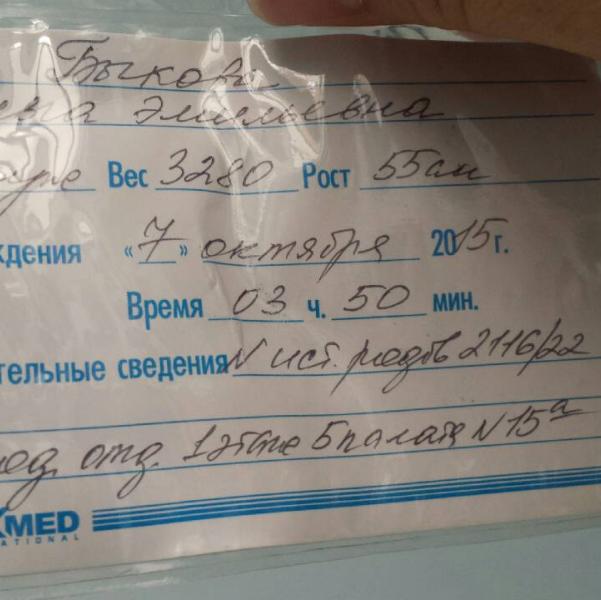 Быкова
Эмильевна
Вес 3280 Рост 55см
ждения «7» октября 2015 г.
Время 03 ч. 50 мин.
тельные сведения N ист. родов 2116/22
отд. 1 этаж 5 палата N 15а
MED
ATIONAL